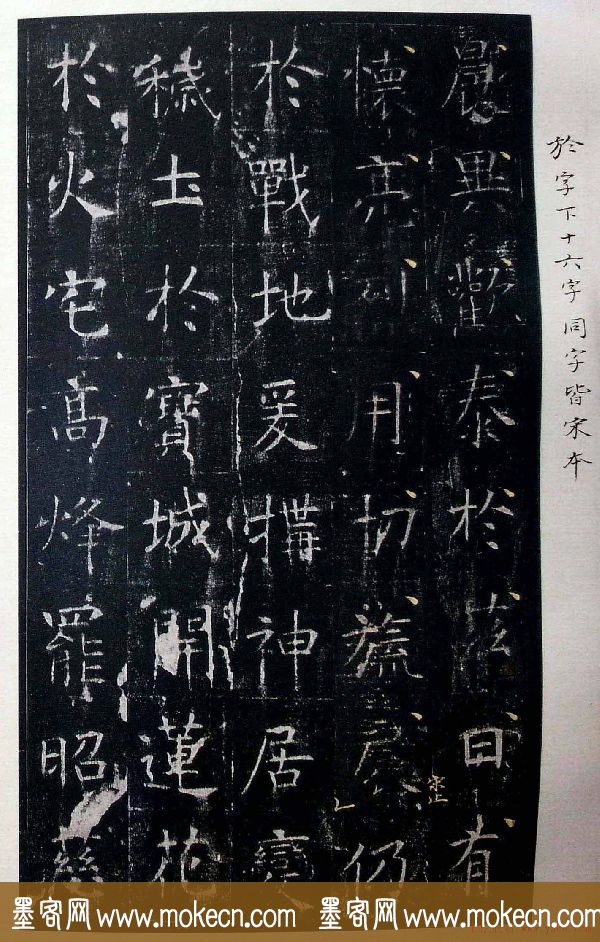 於字下十六字同字皆宋本
異歡泰於茲日有
懷亮烈用切旒扆仍
宋止
於戰地爰構神居變
穢土於寶城開蓮花
於火宅高烽罷昭慈
墨客网 www.mokecn.com 墨客网 www.mokecn.com